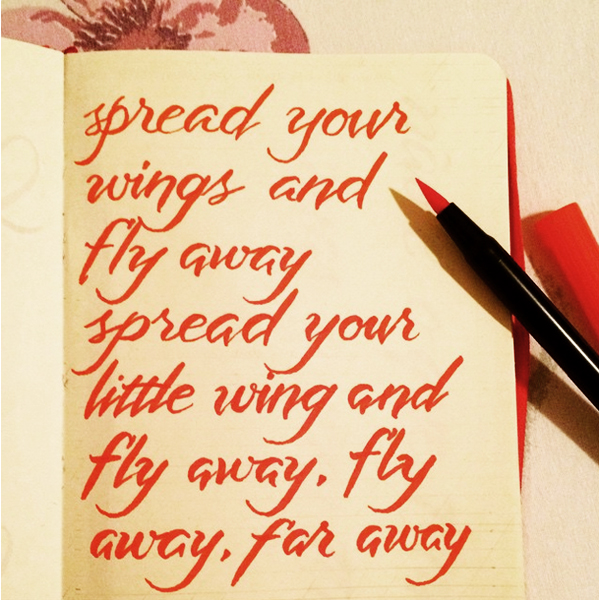 spread your
wings and
fly away
spread your
little wing and
fly away, fly
away, far away